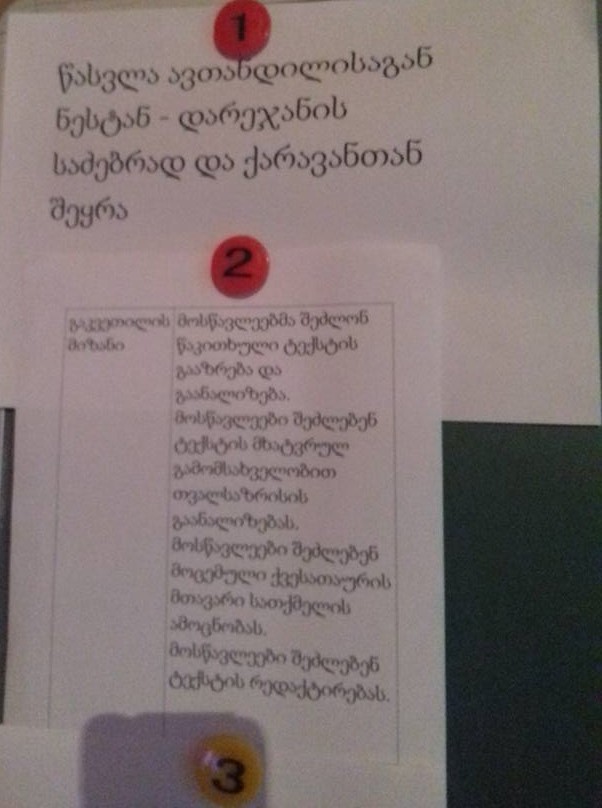 1
წასვლა ავთანდილისაგან
ნესტან - დარეჯანის
საძებრად და ქარავანთან
შეყრა
2
გაკვეთილის
მიზანი
მოსწავლეებმა შეძლონ
წაკითხული ტექსტის
გააზრება და
გაანალიზება.
მოსწავლეები შეძლებენ
ტექსტის მხატვრულ
გამომსახველობით
თვალსაზრისის
გაანალიზებას.
მოსწავლეები შეძლებენ
მოცემული ქვესათაურის
მთავარი სათქმელის
ამოცნობას.
მოსწავლეები შეძლებენ
ტექსტის რედაქტირებას.
3